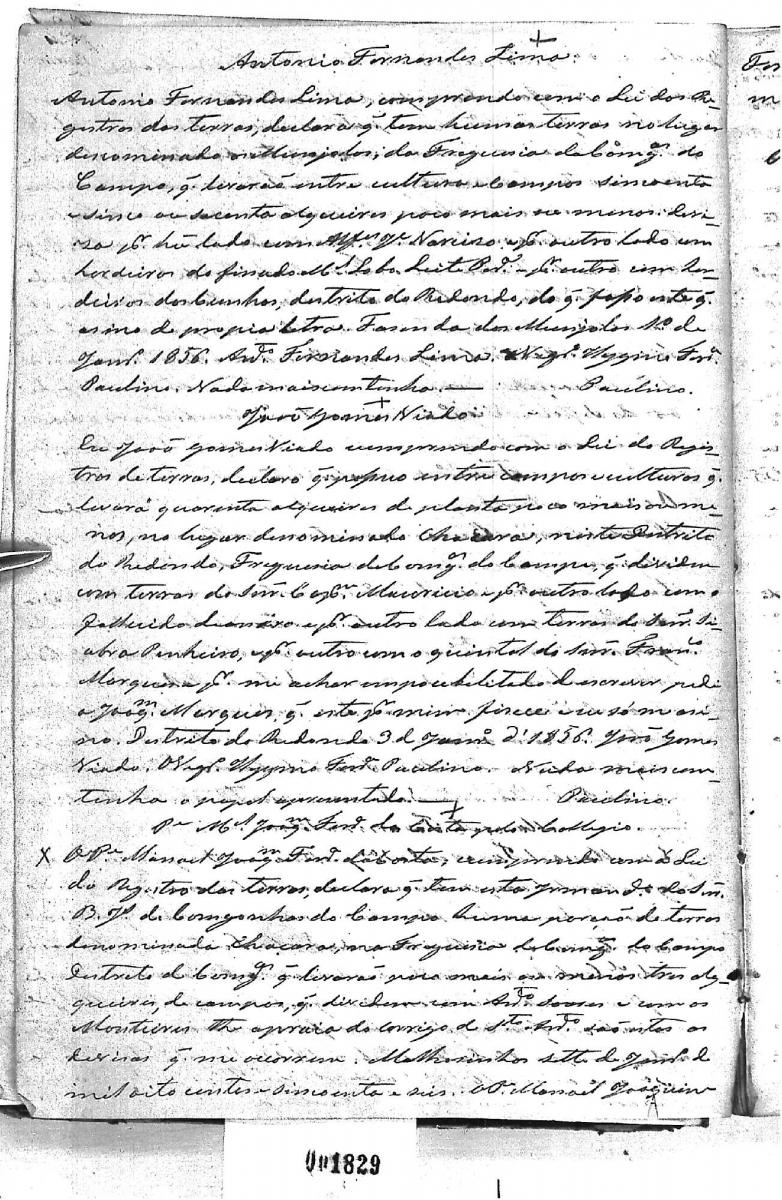 Antonio Fernandes Lima.
Antonio Fernandes Lima, comprendo com o Lei dos Re
gistros das terras, declara q̃ tem humas terras no lugar
denominado Munjolos, da Freguesia de Cong.ˢ do
Campo, q̃ levaraõ entre cultura e Campos sincoenta
e sinco ou secenta alqueires poco mais ou menos devi
za p.ʳ hũ lado com Alf.ˢ Narcizo, e p.ʳ outro lado com
herdeiros do finado M.ˡ Lobo Leite Per.ᵃ e p.ʳ outro com her
deiros dos Cunhas, destrito do Redondo, do q̃ paço este q̃
asino de propia letra. Fasenda dos Munjolos 1.º de
Janr.º 1856. Ant.º Fernandes Lima. O Vegr.º Hygino Ferr.ᵃ
Paulino. Nada mais continha. — Paulino.
João Gomes Viado
Eu João Gomes Viado cumprindo com o Lei do Regis
tros de terras, declaro q̃ posuo entre campos e culturas q̃
levará quarenta alqueires de planta poco mais ou me
nos, no lugar denominado Chacara, neste Destrito
do Redondo, Freguesia de Cong.ˢ do Campo, q̃ dividem
com terras do Snr. Cap.ᵐ Mauricio e p.ʳ outro lado com o
falecido e p.ʳ outro lado com terras do Snr. Si
abra Penheiro, e p.ʳ outro com o quintal do Snr. Fran.ᶜᵒ
Marques e p.ʳ me achar empocibilitado de escrever pedi
a Joaq.ᵐ Marques, q̃ este p.ʳ mim fisece e eu só me asi
no. Destrito do Redondo 3 de Janr.º d' 1856. João Gomes
Viado. O Vegr.º Hygino Ferr.ᵃ Paulino. Nada mais con
tinha o papel apresentado. — Paulino.
P.ᵉ M.ˡ Joaq.ᵐ Ferr.ᵃ da Costa pelo Collegio.
X O P.ᵉ Manoel Joaq.ᵐ Ferr.ᵃ da Costa, cumprindo com a Lei
do Registro das terras, declara q̃ tem esta Irmand.ᵉ do Snr.
B. J.ˢ de Congonhas do Campo huma porção de terras
denominada Chacara, na Freguesia de Cong.ˢ do Campo
Destrito de Cong.ˢ q̃ levaraõ poco mais ou menos tres al
queires, de campos, q̃ dividem com Ant.º e com os
Monteiros the a praia do corrigo de S.ᵗᵒ Ant.º são estas as
devisas q̃ me ocorrem. Mathosinhos sette de Janr.º de
mil oito centos e sincoenta e seis. O P.ᵉ Manoel Joaquim
1829